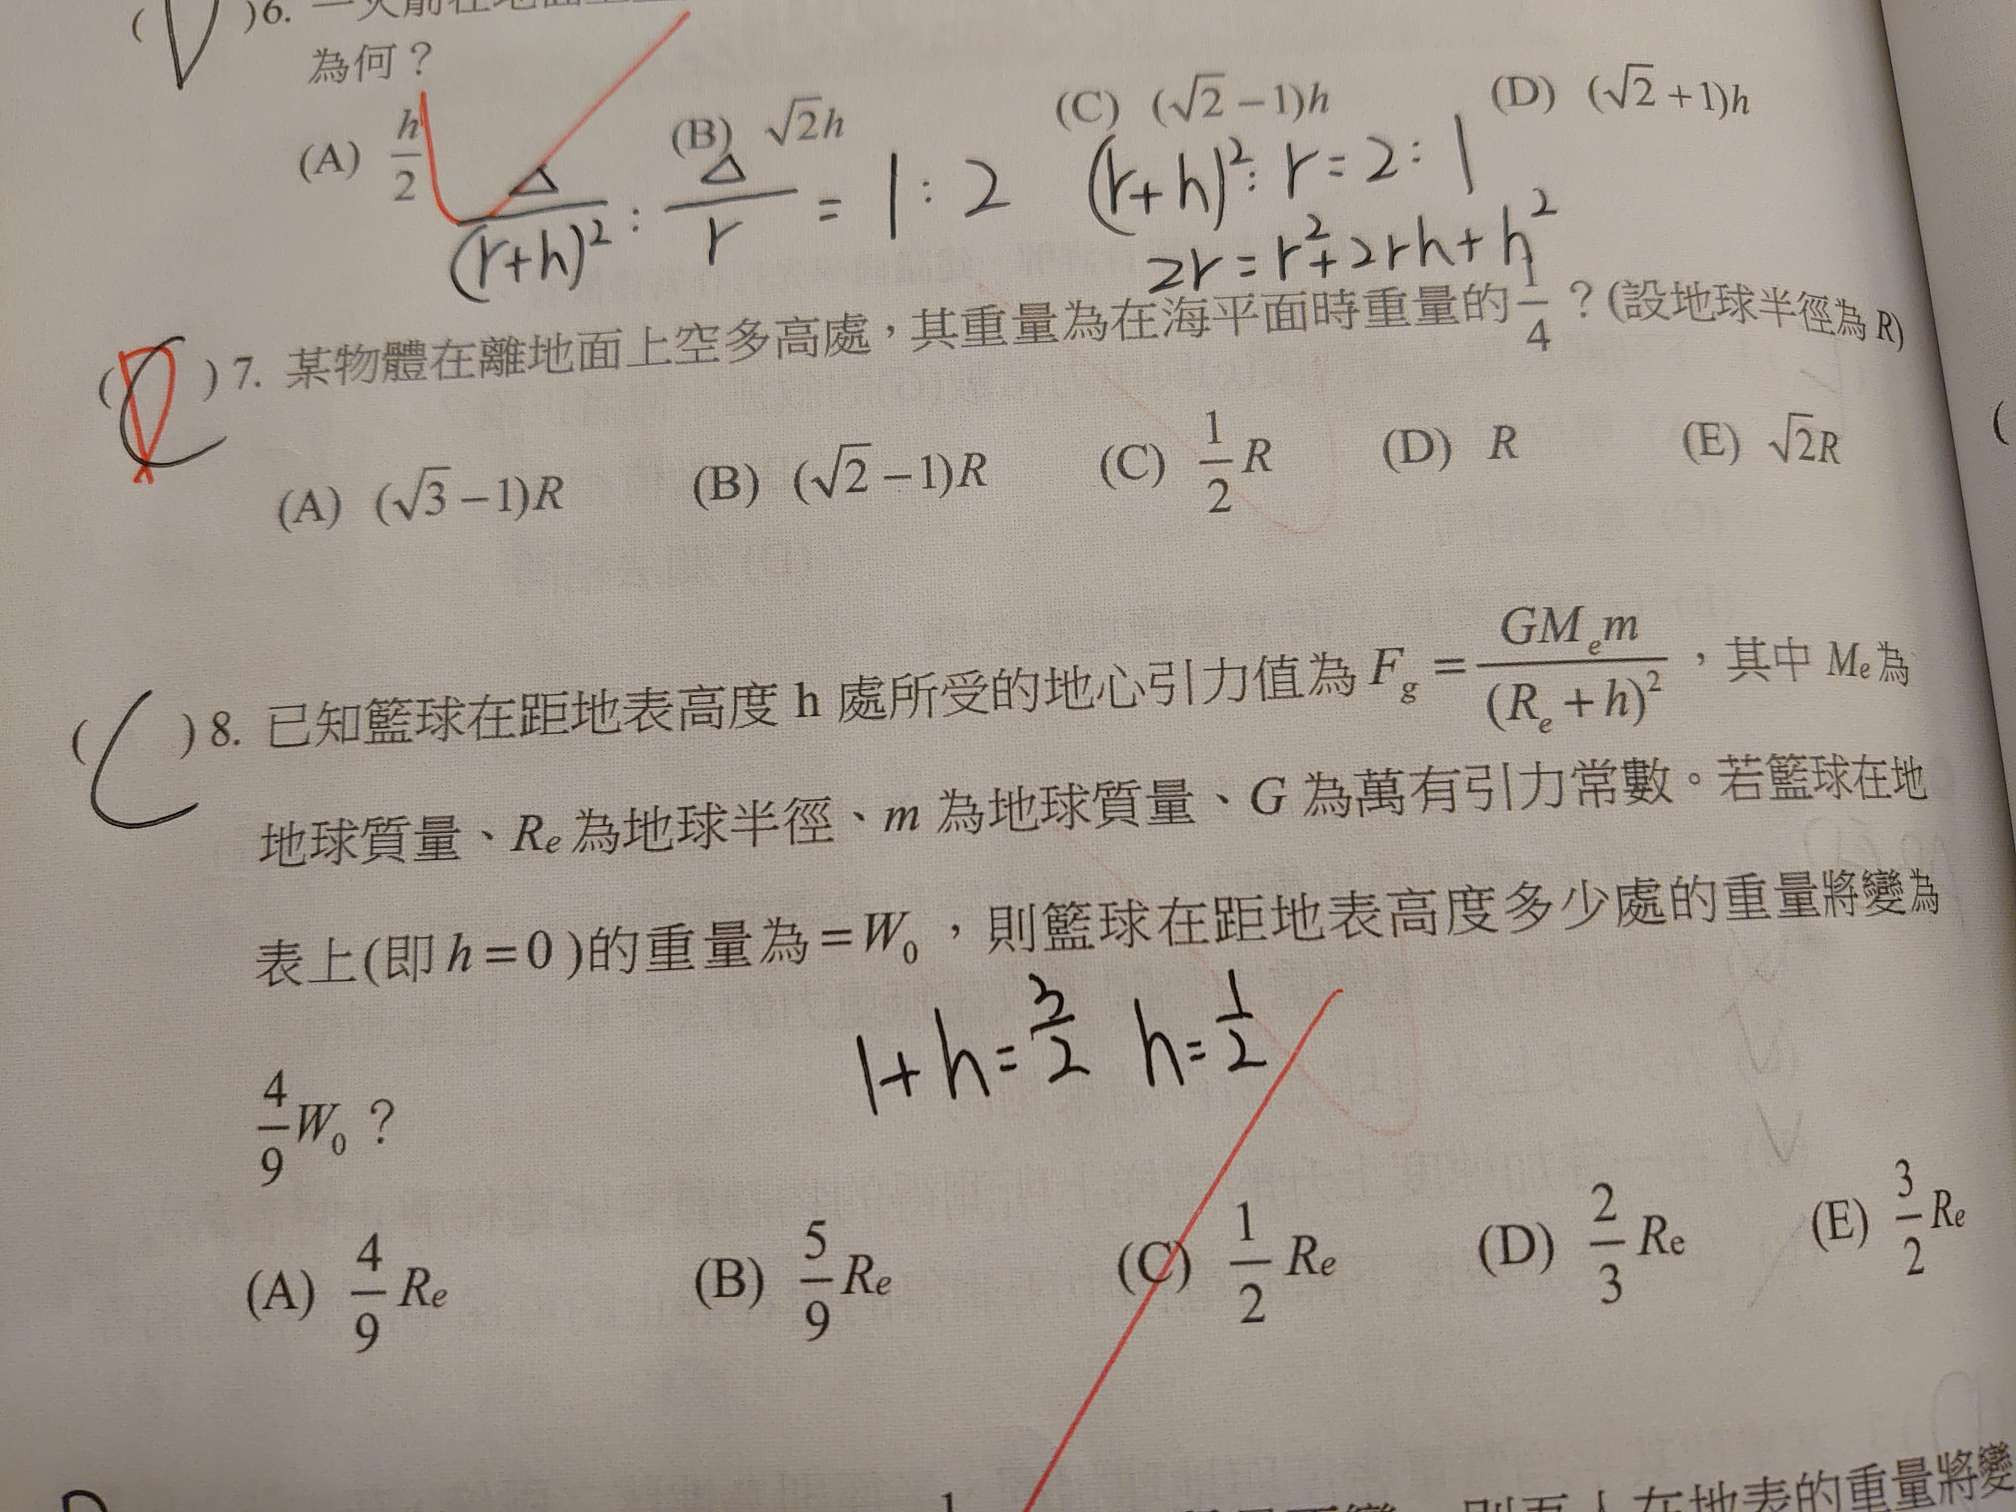 ( D )6.
為何？
(A) h/2 (B) √2h (C) (√2−1)h (D) (√2+1)h
Δ/(r+h)² : Δ/r = 1 : 2 (r+h)² : r = 2 : 1
2r = r²+2rh+h²
( C D )7. 某物體在離地面上空多高處，其重量為在海平面時重量的 1/4 ？(設地球半徑為 R)
(A) (√3−1)R (B) (√2−1)R (C) 1/2 R (D) R (E) √2R
( C )8. 已知籃球在距地表高度 h 處所受的地心引力值為 F_g = GM_e m/(R_e+h)²，其中 Me為
地球質量、Re為地球半徑、m 為地球質量、G 為萬有引力常數。若籃球在地
表上(即 h=0)的重量為=W₀，則籃球在距地表高度多少處的重量將變為
1+h=3/2 h=1/2
4/9 W₀ ？
(A) 4/9 Re (B) 5/9 Re (C) 1/2 Re (D) 2/3 Re (E) 3/2 Re
在地表的重量將變